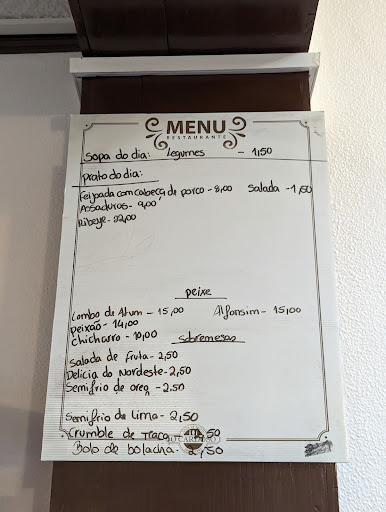 MENU
RESTAURANTE
Sopa do dia: legumes - 1,50
Prato do dia:
Feijoada com cabeça de porco - 8,00 Salada - 1,50
Assaduros - 9,00
Ribeye - 22,00
peixe
Lombo de Atum - 15,00 Alfonsim - 15,00
peixão - 14,00
chicharro - 10,00
Sobremesas
Salada de fruta - 2,50
Delicia do Nordeste - 2,50
Semifrio de oreo - 2,50
Semifrio de Lima - 2,50
Crumble de Maça 50
Bolo de bolacha - 2,50